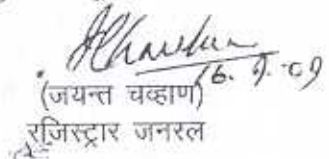 16.9.09
(जयन्त चव्हाण)
रजिस्ट्रार जनरल